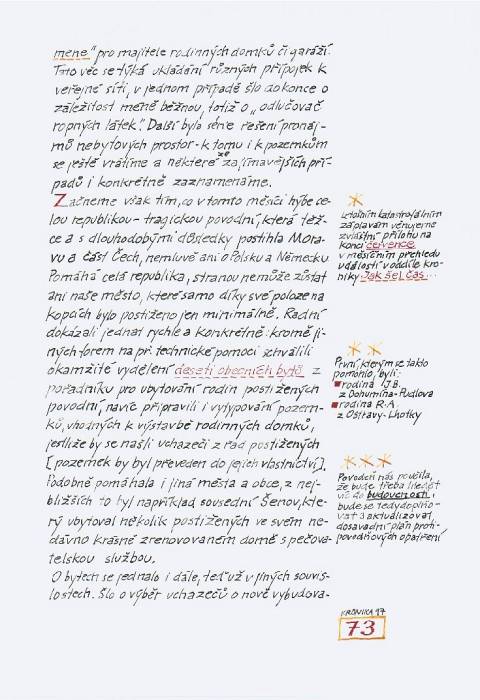 mene" pro majitele rodinných domků či garáží.
Tato věc se týká ukládání různých přípojek k
veřejné síti, v jednom případě šlo dokonce o
záležitost méně běžnou, totiž o „odlučovač
ropných látek". Další byla série řešení pronáj-
mů nebytových prostor - k tomu i k pozemkům
se ještě vrátíme a některé ze zajímavějších pří-
padů i konkrétně zaznamenáme.
Začneme však tím, co v tomto měsíci hýbe ce-
lou republikou - tragickou povodní, která těž-
ce a s dlouhodobými důsledky postihla Mora-
vu a část Čech, nemluvě ani o Polsku a Německu
Pomáhá celá republika, stranou nemůže zůstat
ani naše město, které samo díky své poloze na
kopcích bylo postiženo jen minimálně. Radní
dokázali jednat rychle a konkrétně: kromě ji-
ných forem na př. technické pomoci schválili
okamžité vydělení deseti obecních bytů z
pořadníku pro ubytování rodin postižených
povodní, navíc připravili i vytypování pozem-
ků, vhodných k výstavbě rodinných domků,
jestliže by se našli uchazeči z řad postižených
[pozemek by byl převeden do jejich vlastnictví].
Podobně pomáhala i jiná města a obce, z nej-
bližších to byl například sousední Šenov, kte-
rý ubytoval několik postižených ve svém ne-
dávno krásně zrenovovaném domě s pečova-
telskou službou.
O bytech se jednalo i dále, teď už v jiných souvis-
lostech. Šlo o výběr uchazečů o nově vybudova-
letošním katastrofálním
záplavám věnujeme
zvláštní přílohu na
konci července
v měsíčním přehledu
událostí v oddíle kro-
niky Jak šel čas...
První, kterým se takto
pomohlo, byli:
rodina J.B.
z Bohumína-Pudlova
rodina R.A.
z Ostravy-Lhotky
Povodeň nás poučila,
že bude třeba hledět
víc do budoucnosti,
bude se tedy doplňo-
vat a aktualizovat
dosavadní plán proti-
povodňových opatření
KRONIKA 97
73